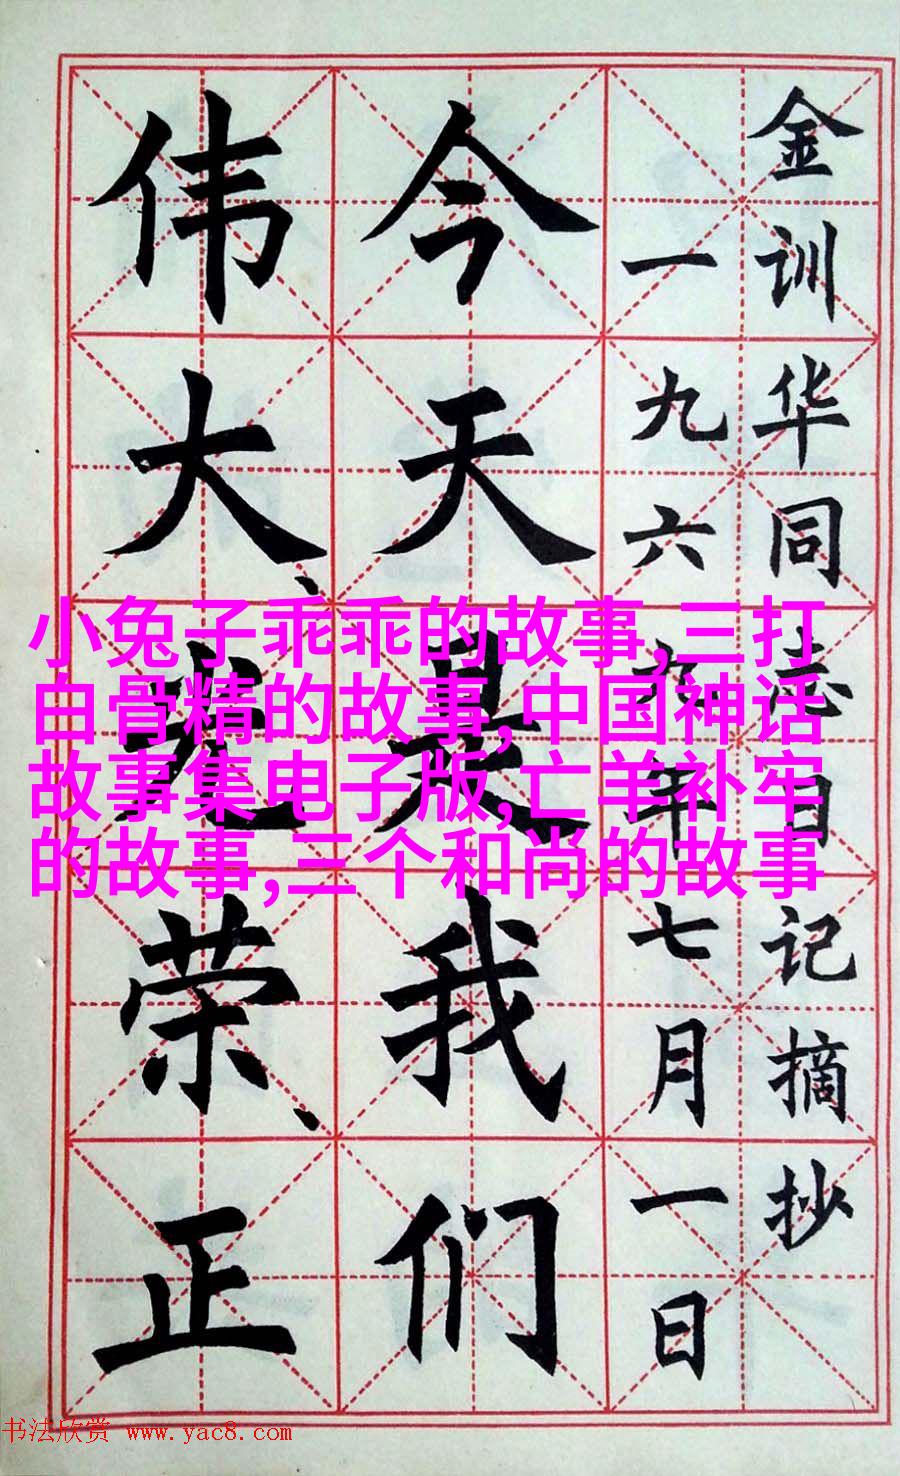 金训华同志日记摘抄
一九六年七月一日
今天是我们
伟大、光荣、正
小兔子乖乖的故事,三打
白骨精的故事,中国神话
故事集电子版,亡羊补牢
的故事,三个和尚的故事
书法欣赏 www.yac8.com